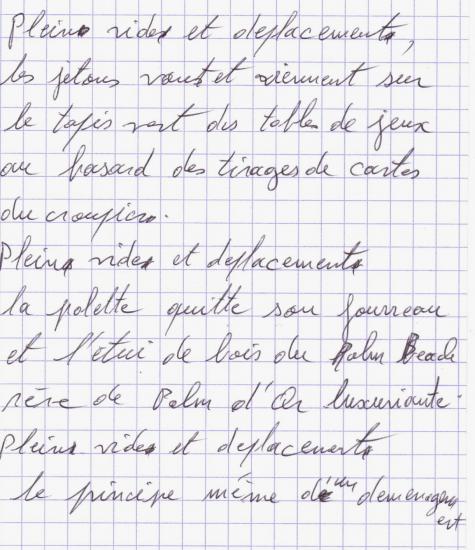 Pleins vides et deplacements,
les jetons vont et viennent sur
le tapis vert des tables de jeux
au hasard des tirages de cartes
du croupier.
Pleins vides et deplacements
la palette quitte son fourreau
et l'étui de bois du Palm Beach
rêve de Palm d'Or luxuriante.
Pleins vides et deplacements
le principe même d'un demenagement
est